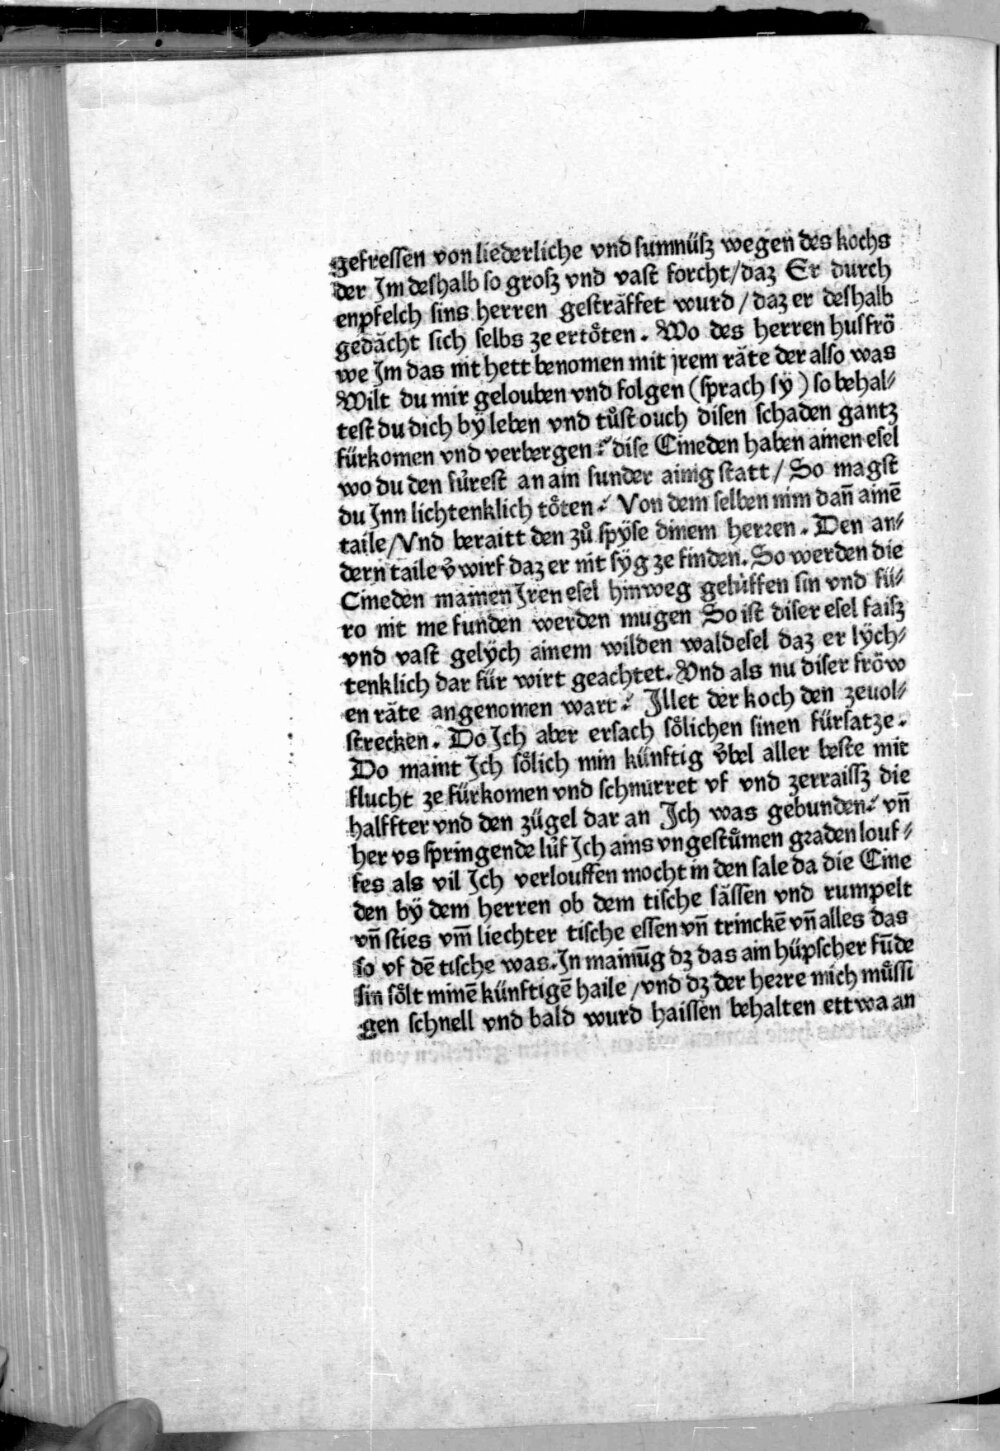 gefressen von liederliche vnd sumnüsz wegen des kochs
der Im deshalb so grosz vnd vast forcht/daz Er durch
enpfelch sins herren gesträffet wurd/daz er deshalb
gedächt sich selbs ze ertöten. Wo des herren husfrö
we Im das nit hett benomen mit jrem räte der also was
Wilt du mir gelouben vnd folgen (sprach sÿ) so behal⸗
test du dich bÿ leben vnd tůst ouch disen schaden gantz
fürkomen vnd verbergen: dise Cineden haben ainen esel
wo du den fůrest an ain sunder ainig statt/So magst
du Inn lichtenklich töten: Von dem selben nim dañ ainē
taile/Vnd beraitt den zů spÿse dinem herren. Den an⸗
dern taile v̄wirf daz er nit sÿg ze finden. So werden die
Cineden mainen Iren esel hinweg geluffen sin vnd fü⸗
ro nit me funden werden mugen So ist diser esel faisz
vnd vast gelÿch ainem wilden waldesel daz er lÿch⸗
tenklich dar für wirt geachtet. Vnd als nu diser fröw
en räte angenomen wart: Illet der koch den zeuol⸗
strecken. Do Ich aber ersach sölichen sinen fürsatze.
Do maint Ich sölich min künftig v̈bel aller beste mit
flucht ze fürkomen vnd schnurret vf vnd zerraissz die
halffter vnd den zügel dar an Ich was gebunden: vñ
her vs springende lůf Ich ains vngestůmen graden louf⸗
fes als vil Ich verlouffen mocht in den sale da die Cine
den bÿ dem herren ob dem tische sässen vnd rumpelt
vñ sties vm̄ liechter tische essen vñ trinckē vñ alles das
so vf dē tische was. In mainūg dz das ain hüpscher fūde
sin sölt minē künftigē haile/vnd dz der herre mich můssi
gen schnell vnd bald wurd haissen behalten ettwa an